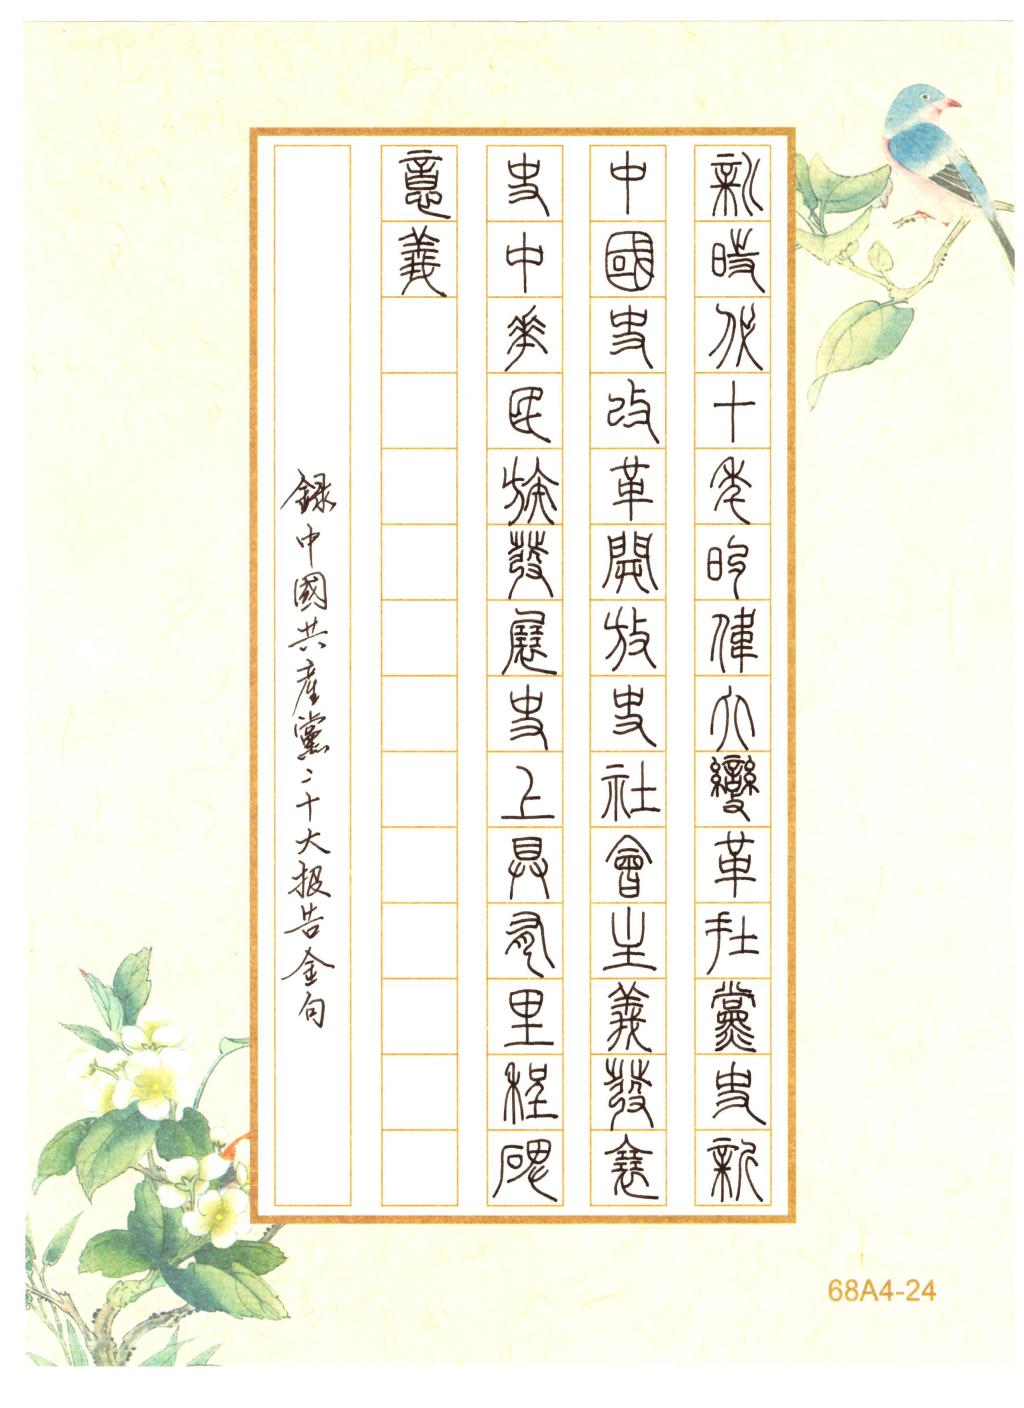 新時代十年的偉大變革在黨史新
中國史改革開放史社會主義發展
史中華民族發展史上具有里程碑
意義
録中國共產黨二十大报告金句
68A4-24